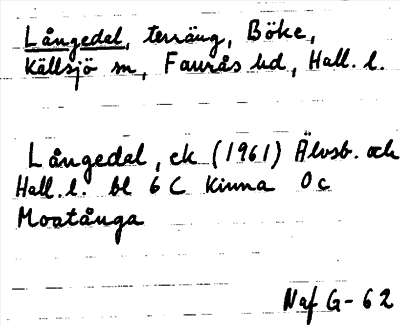 Långedal, terräng, Böke,
Källsjö sn, Faurås hd, Hall. l.
Långedal, ek (1961) Älvsb. och
Hall. l. bl 6 C Kinna 0 c
Moatånga
Naf G-62